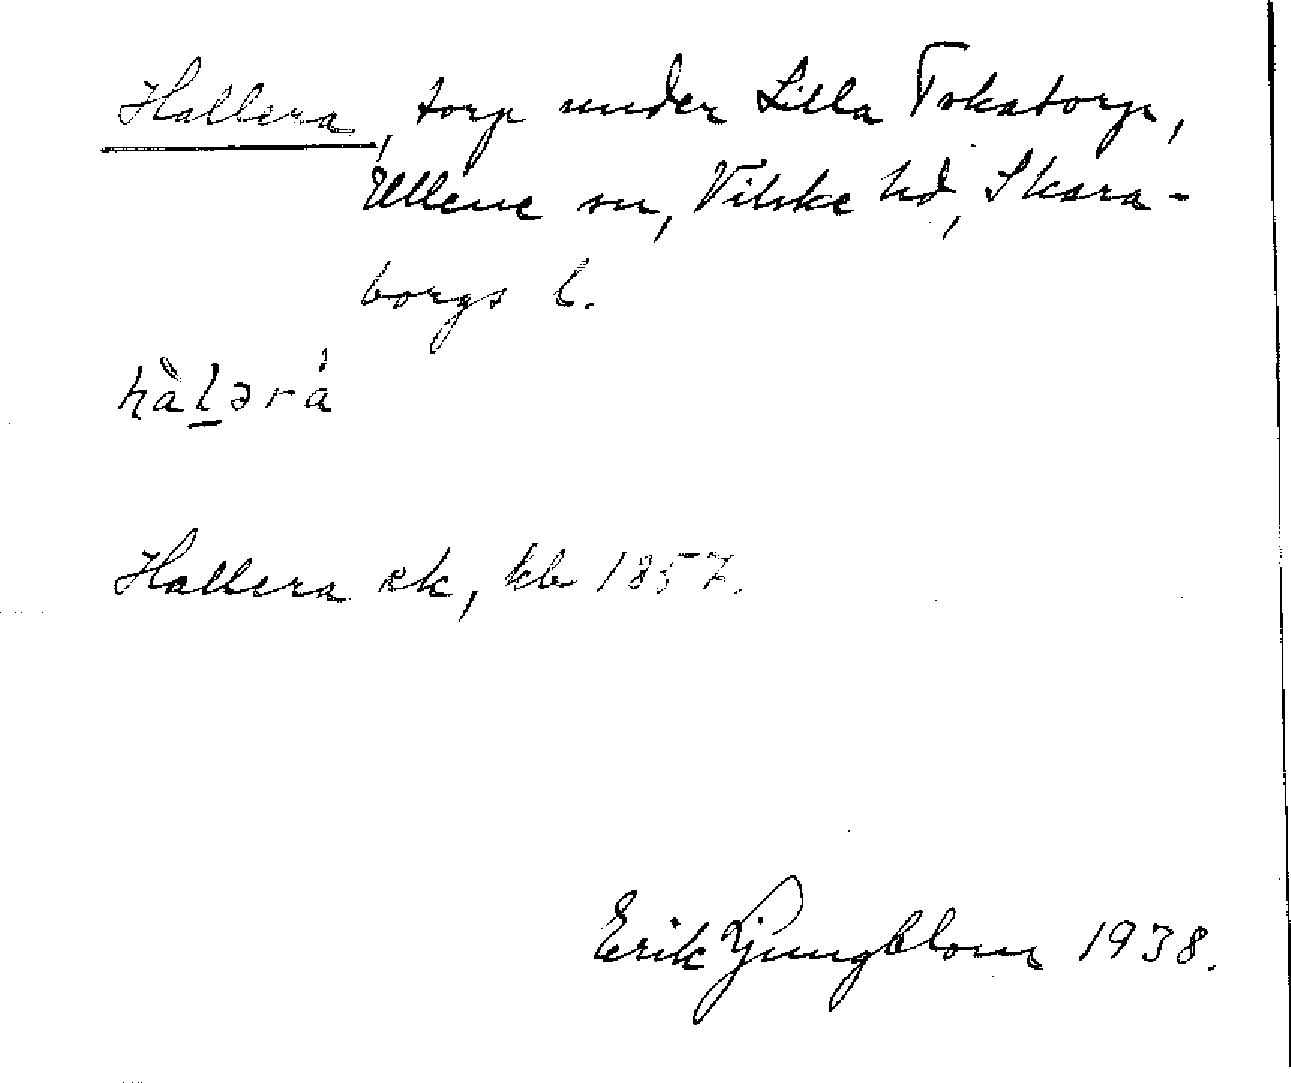 Hallera, torp under Lilla Tokatorp,
Ullene sn, Vilske hd, Skara-
borgs l.
hàl̲ərá
Hallera ek, kb 1857.
Erik Ljungblom 1938.